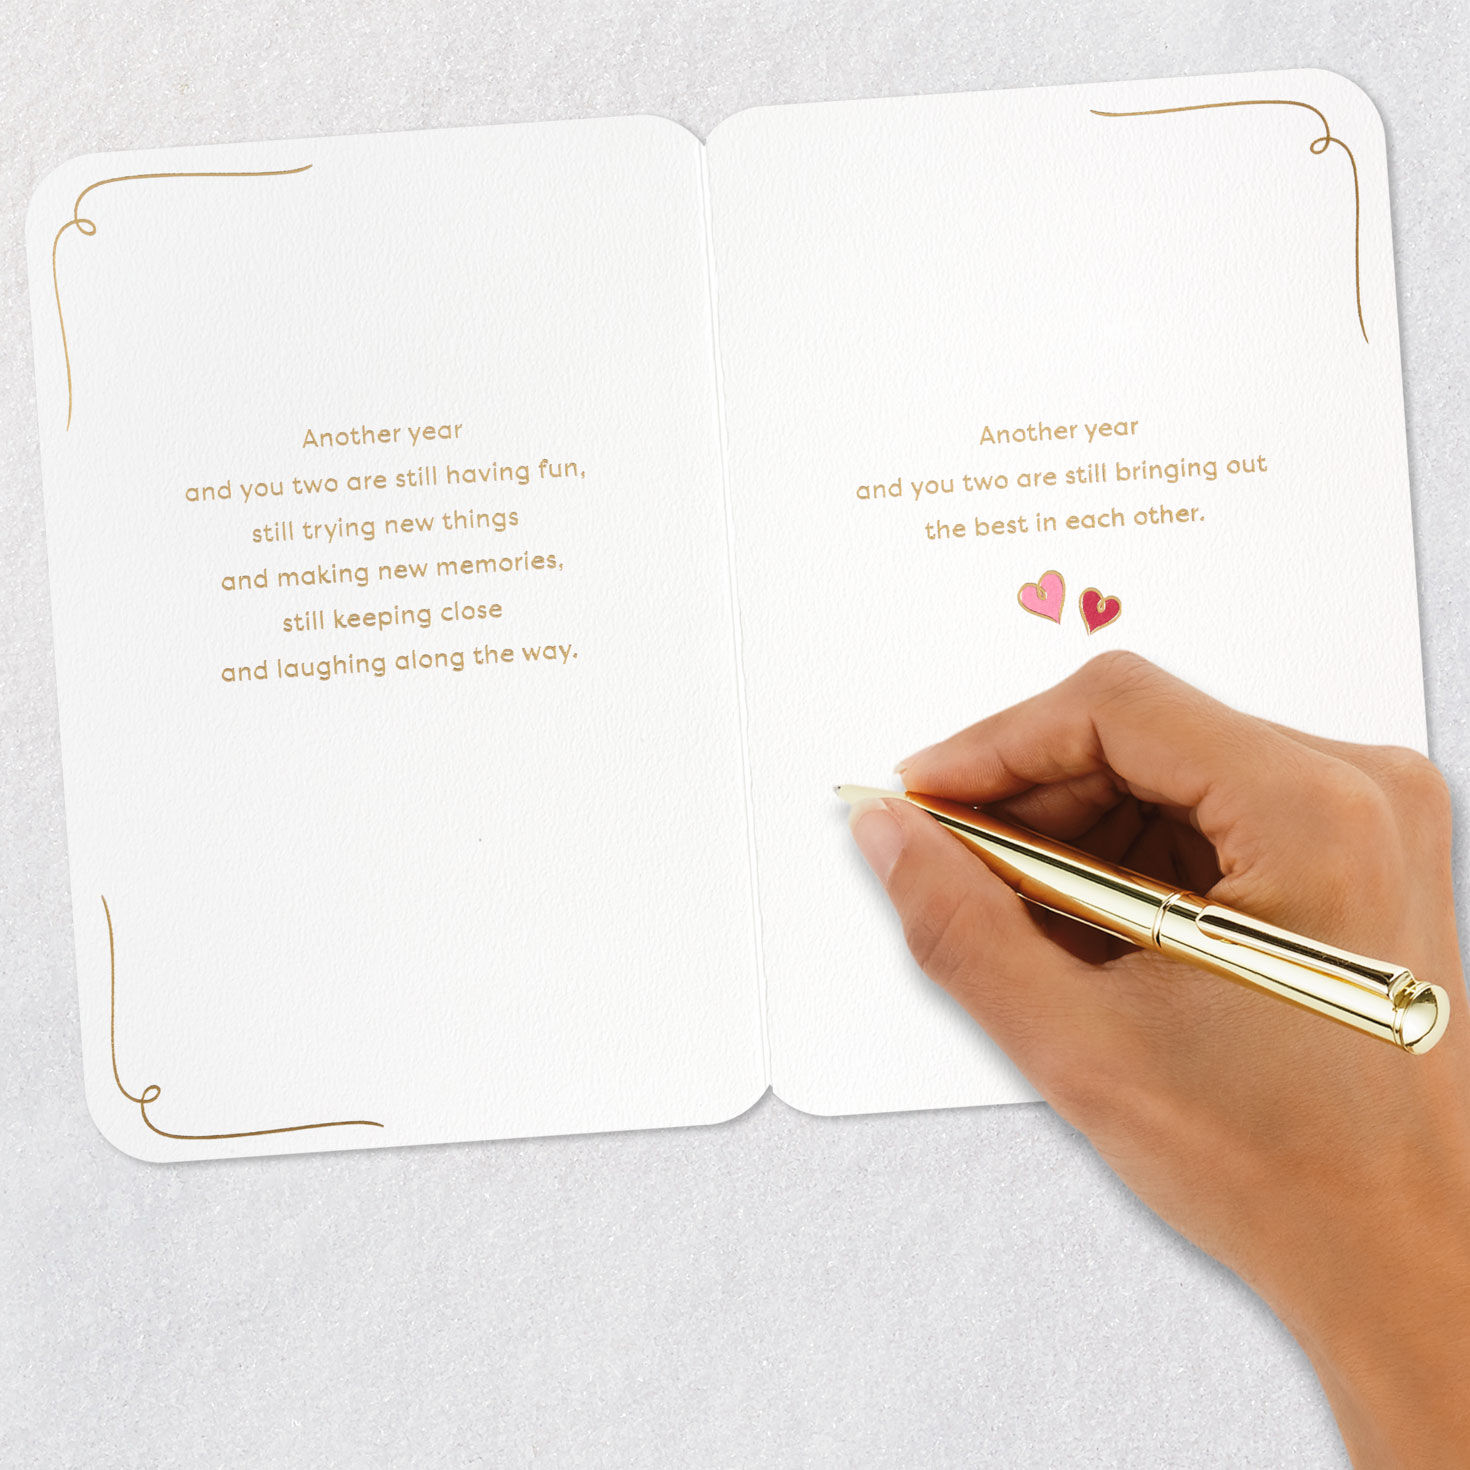 Another year
and you two are still having fun,
still trying new things
and making new memories,
still keeping close
and laughing along the way.
Another year
and you two are still bringing out
the best in each other.